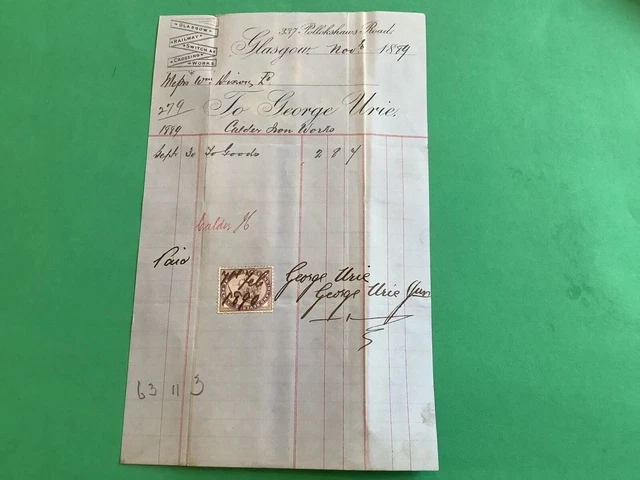 GLASGOW
RAILWAY
SWITCH AND
CROSSINGS
WORKS
337 Pollokshaws Road,
Glasgow, Nov 1889
Messrs Wm Dixon, Ld
279
To George Urie.
1889
Calder Iron Works
Sept 30 To Goods 2 8 4
Calder
Paid
Feb
1890
George Urie
George Urie Jun
63 11 3